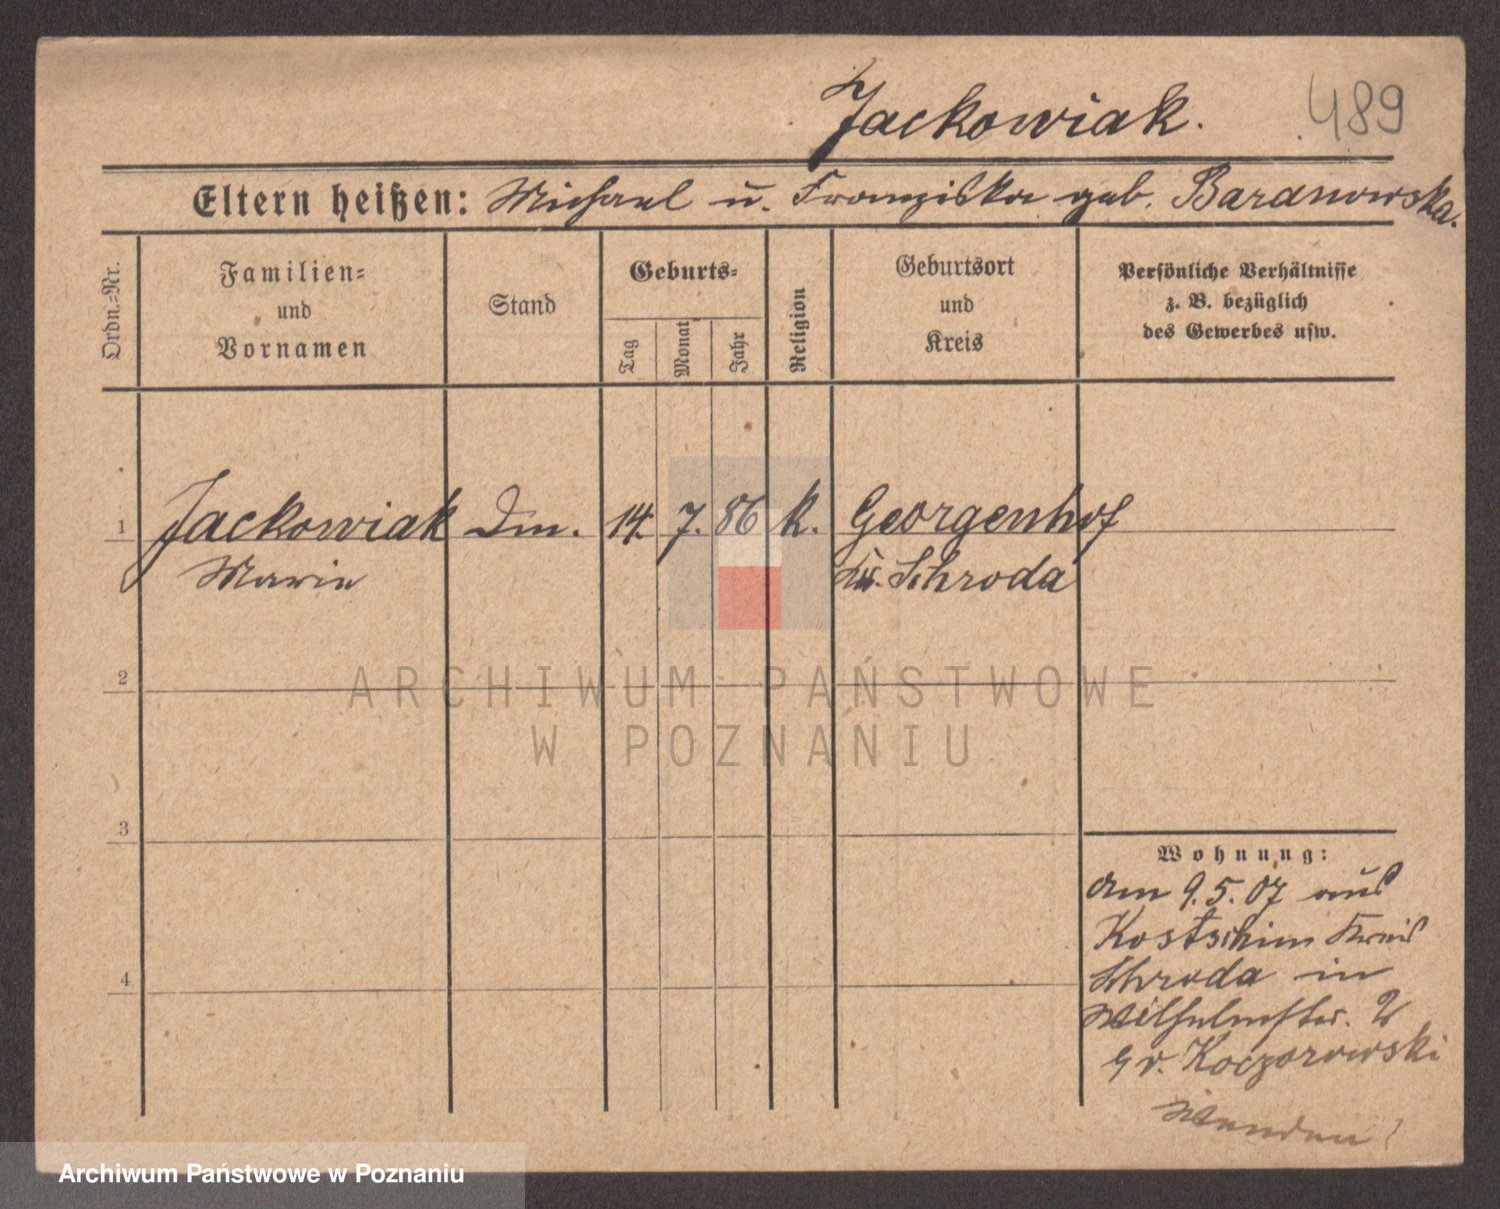 Jackowiak.
489
Eltern heißen: Michael u. Franziska geb. Baranowska.
Ordn.-Nr.
Familien-
und
Vornamen
Stand
Geburts-
Tag
Monat
Jahr
Religion
Geburtsort
und
Kreis
Persönliche Verhältnisse
z. B. bezüglich
des Gewerbes usw.
1 Jackowiak Dm. 14. 7. 86 k. Georgenhof
Marie Kr. Schroda
2
3
4
Wohnung:
am 9.5.07 aus
Kostschin Kreis
Schroda in
Wilhelmstr. 2
v. Koczorowski
Wenden!
ARCHIWUM PAŃSTWOWE
W POZNANIU
Archiwum Państwowe w Poznaniu